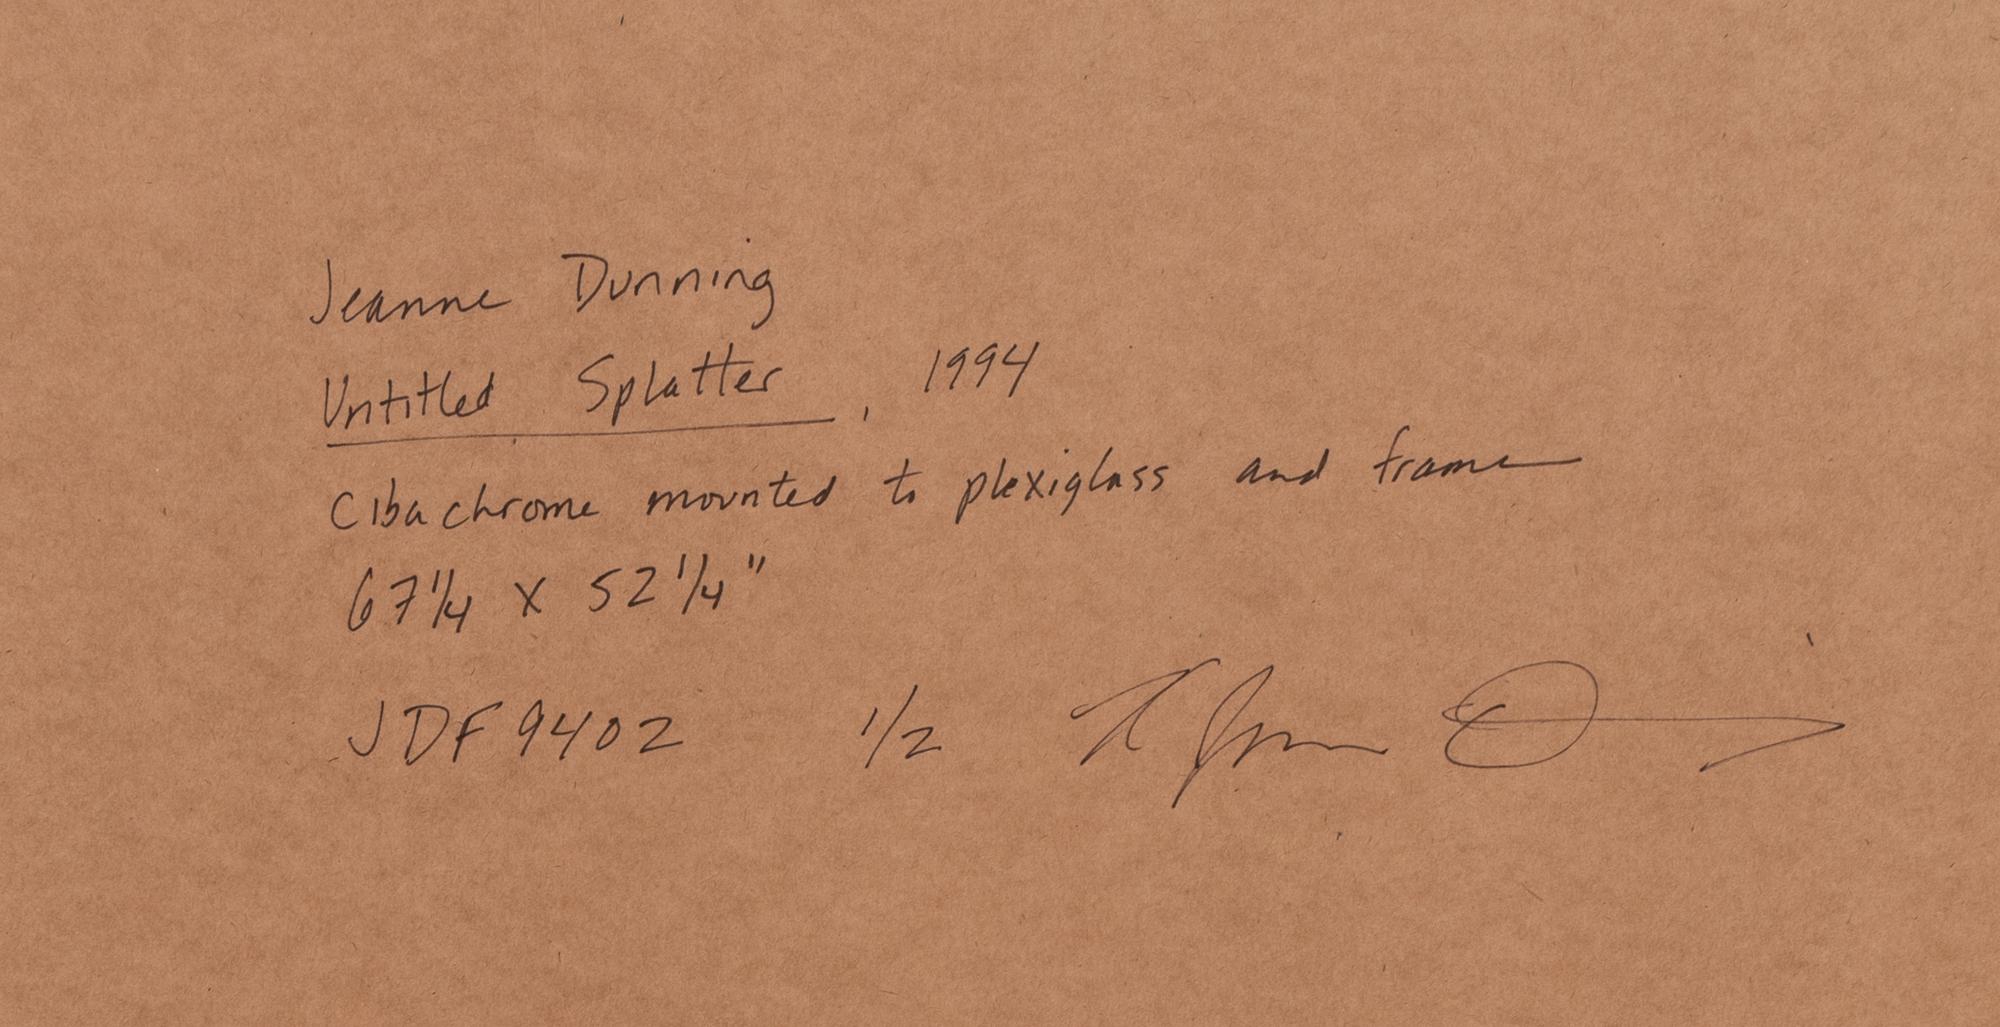 Jeanne Dunning
Untitled Splatter, 1994
Cibachrome mounted to plexiglass and frame
67 1/4 x 52 1/4"
JDF9402 1/2